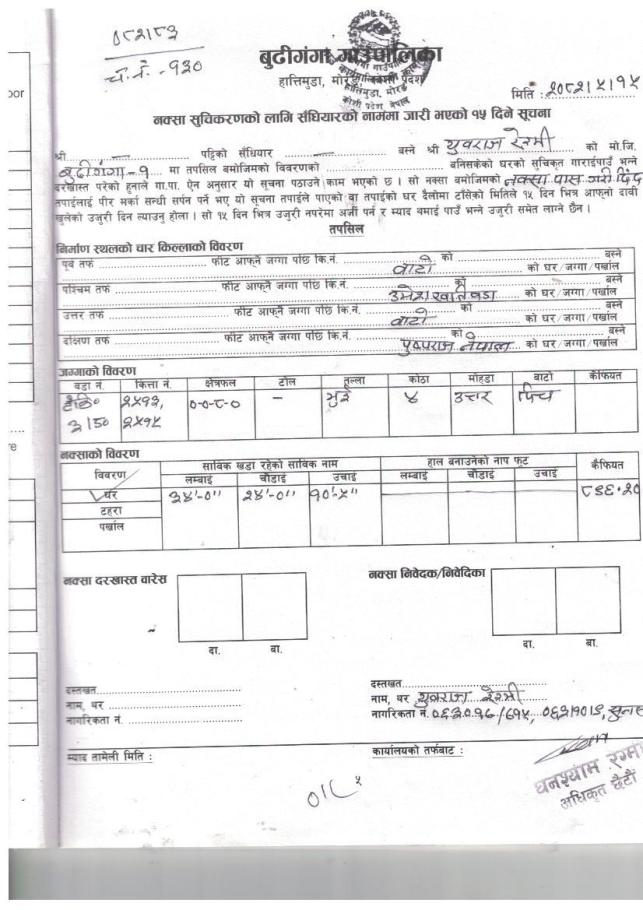 ०८२।८३
च.नं.-१३०
बुढीगंगा गाउँपालिका
हात्तिमुडा, मोरङ कोशी प्रदेश
हात्तिमुडा, मोरङ
कोशी प्रदेश, नेपाल
मिति : २०८२।५।१५
नक्सा सुचिकरणको लागि सँधियारको नाममा जारी भएको १५ दिने सूचना
श्री पट्टिको सँधियार बस्ने श्री युवराज रेग्मी को मो.जि.
बुढीगंगा-१ मा तपसिल बमोजिमको विवरणको बनिसकेको घरको सुचिकृत गराईपाउँ भन्ने
दरखास्त परेको हुनाले गा.पा. ऐन अनुसार यो सूचना पठाउने काम भएको छ । सो नक्सा बमोजिमको नक्सा पास जरी दिंदा
तपाईनाई पीर मर्का सन्धी सर्पन पर्ने भए यो सूचना तपाईले पाएको वा तपाईको घर दैलोमा टाँसेको मितिले १५ दिन भित्र आफ्नो दावी
खुलेको उजुरी दिन ल्याउनु होला । सो १५ दिन भित्र उजुरी नपरेमा अर्जी पर्न र म्याद थमाई पाउँ भन्ने उजुरी समेत लाग्ने छैन ।
तपसिल
निर्माण स्थलको चार किल्लाको विवरण
पूर्व तर्फ फीट आफ्नै जग्गा पछि कि.नं. को बस्ने
बाटो को घर/जग्गा/पर्खाल
पश्चिम तर्फ फीट आफ्नै जग्गा पछि कि.नं. को बस्ने
उमेश खतिवडा को घर/जग्गा/पर्खाल
उत्तर तर्फ फीट आफ्नै जग्गा पछि कि.नं. को बस्ने
बाटो को घर/जग्गा/पर्खाल
दक्षिण तर्फ फीट आफ्नै जग्गा पछि कि.नं. को बस्ने
नेपाल को घर/जग्गा/पर्खाल
जग्गाको विवरण
वडा नं. कित्ता नं. क्षेत्रफल टोल तल्ला कोठा मोहडा बाटो कैफियत
२५१३, ०-०-८-० - भुई ४ उत्तर पिच
२५१५
नक्साको विवरण
विवरण साविक खडा रहेको साविक नाम हाल बनाउनेको नाप फुट कैफियत
लम्बाई चौडाई उचाई लम्बाई चौडाई उचाई
घर ३४'-०" २४'-०" १०'-५" ८३६.२०
टहरा
पर्खाल
नक्सा दरखास्त वारेस नक्सा निवेदक/निवेदिका
दा. बा. दा. बा.
दस्तखत दस्तखत
नाम, थर नाम, थर युवराज रेग्मी
नागरिकता नं. नागरिकता नं.
म्याद तामेली मिति : कार्यालयको तर्फबाट :
घनश्याम
अधिकृत छैटौं